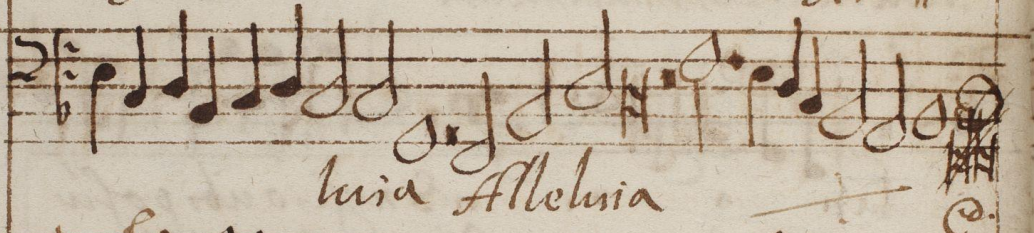 luia Alleluia